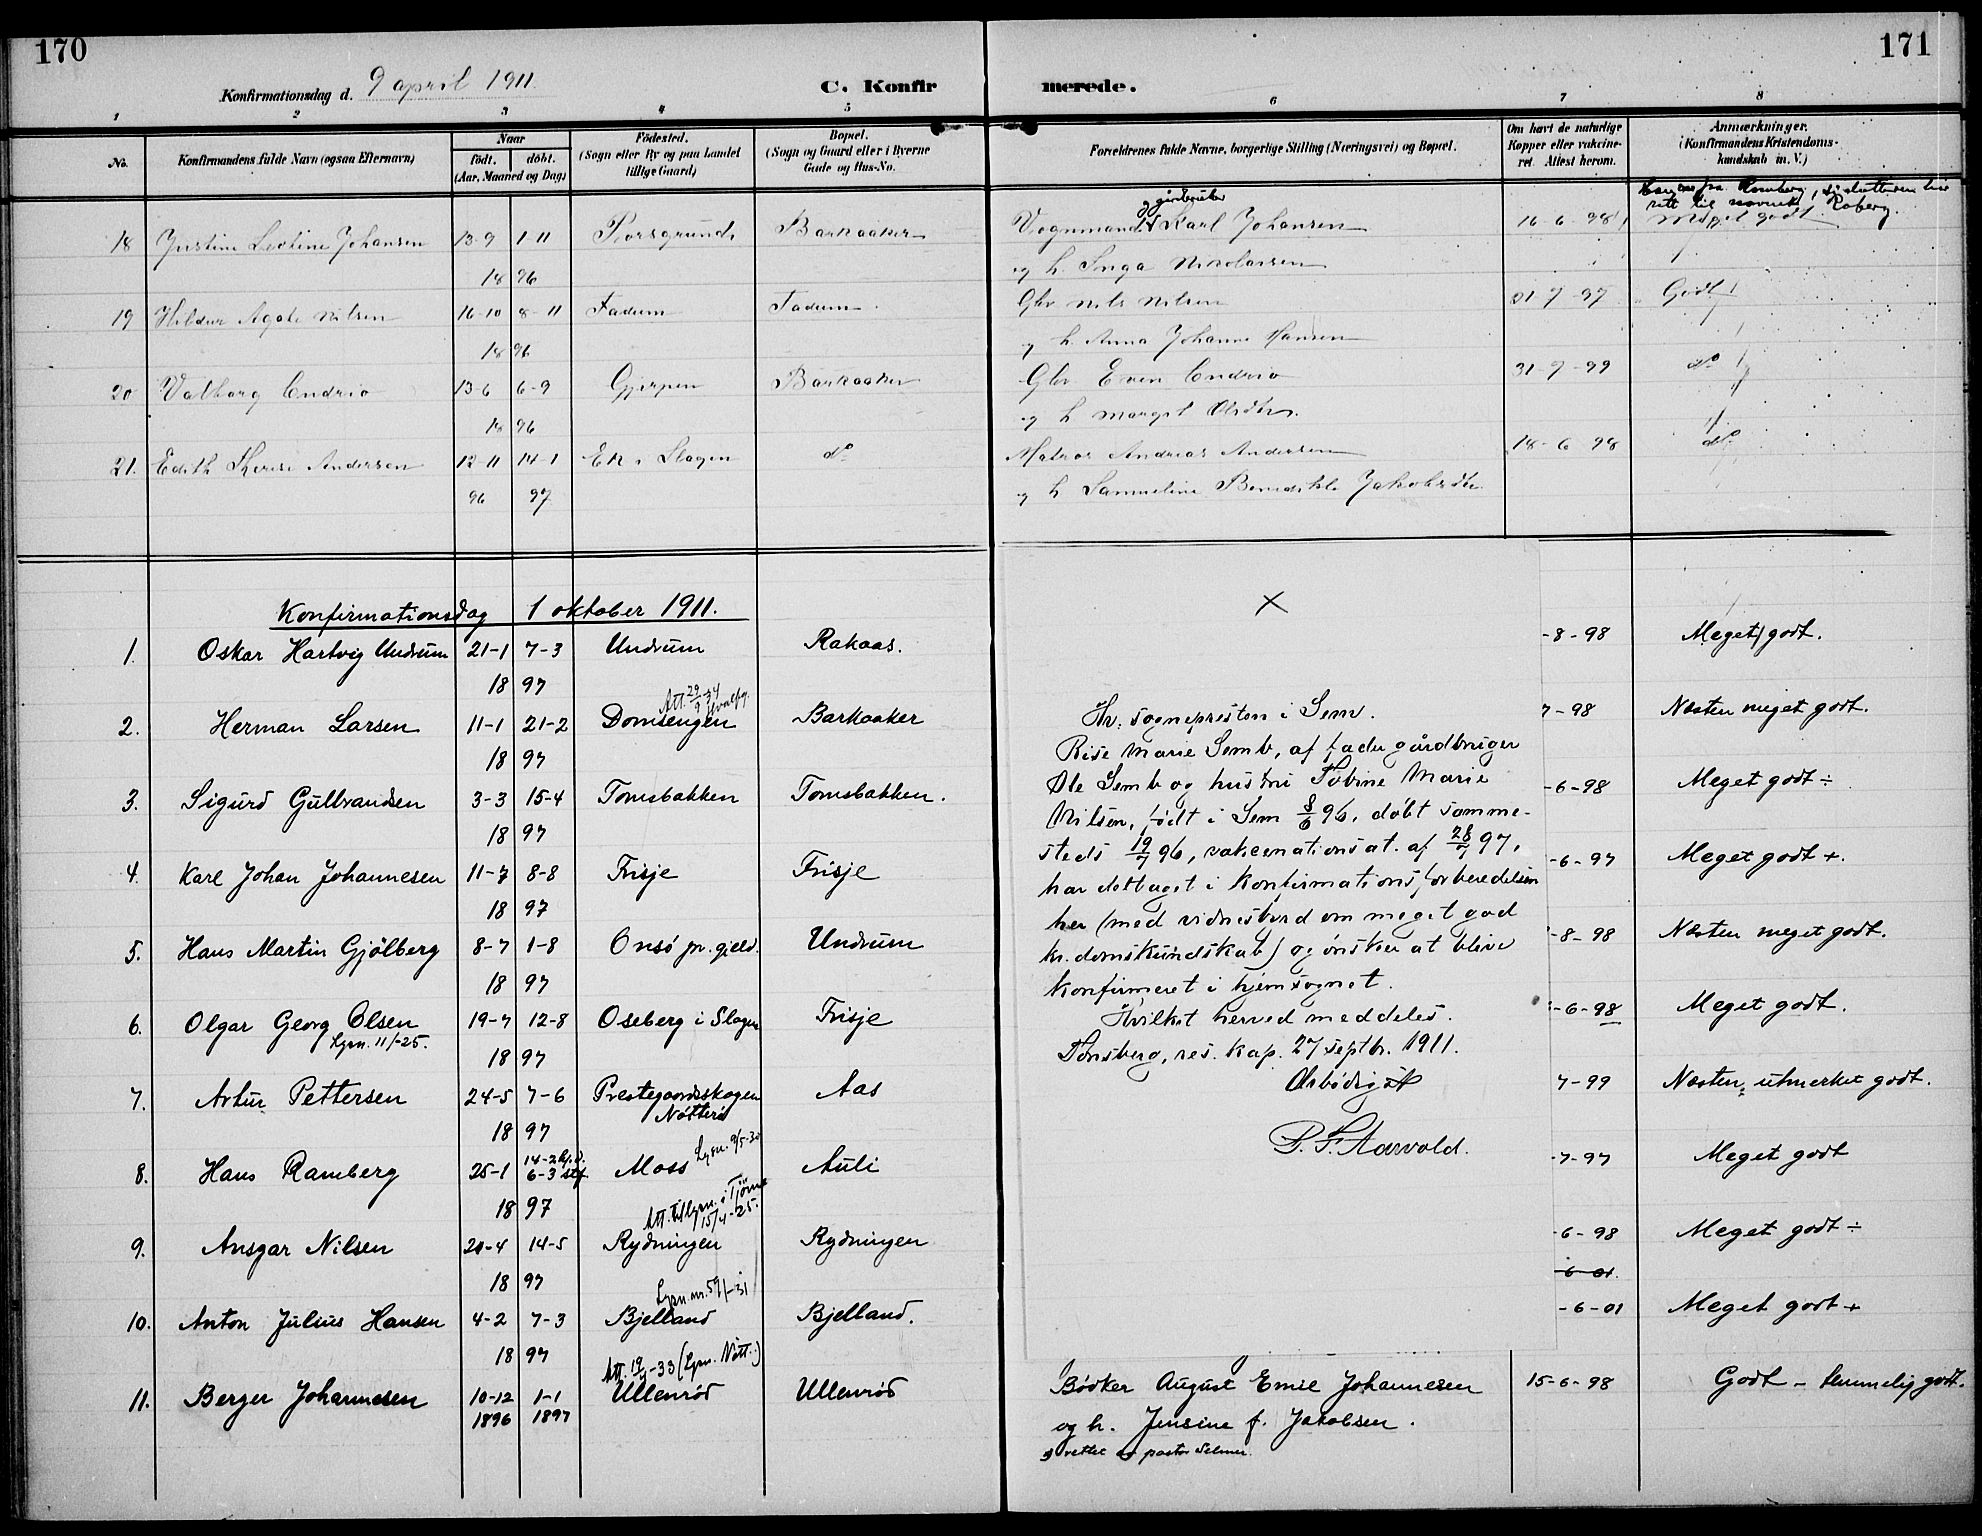 170
171
Konfirmationsdag d. 9 april 1911.
C. Konfirmerede.
1 2 3 4 5 6 7 8
No.
Konfirmandens fulde Navn (ogsaa Efternavn)
Naar
födt. döbt.
(Aar, Maaned og Dag)
Födested.
(Sogn eller By og paa Landet
tillige Gaard)
Bopæl.
(Sogn og Gaard eller i Byerne
Gade og Hus-No.
Forældrenes fulde Navne, borgerlige Stilling (Næringsvei) og Bopæl.
Om havt de naturlige
Kopper eller vakcine-
ret. Attest herom.
Anmærkninger.
(Konfirmandens Kristendoms-
kundskab m. V.)
rett til navnet Roberg.
og gårdbruker
18 Justine Leotine Johansen 13-9 1-11 Porsgrund Barkaaker Vognmand Karl Johansen 16-6-98 Meget godt
18 96 og h. Inga Nikolaisen
19 Hildur Agate Nilsen 16-10 8-11 Fadum Fadum Gbr Nils Nilsen 01-7-97 Godt
18 96 og h. Anna Johanne Hansen
20 Valborg Endrio 13-6 6-9 Gjerpen Barkaaker Gbr Even Endrio 31-7-99 do
18 96 og h. Margit Olsdtr.
21. Edith Therese Andersen 12-11 14-1 Ek i Slagen do Matros Andreas Andersen 18-6-98 do
96 97 og h. Samueline Benedikte Jakobsdtr.
Konfirmationsdag 1 oktober 1911.
1. Oskar Hartvig Undrum 21-1 7-3 Undrum Rakaas. -8-98 Meget godt.
18 97
Att. 29/9-34
2. Herman Larsen 11-1 21-2 Domsengen Barkaaker 7-98 Næsten meget godt.
18 97
3. Sigurd Gulbrandsen 3-3 15-4 Tomsbakken Tomsbakken. -6-98 Meget godt ÷
18 97
4. Karl Johan Johannesen 11-7 8-8 Frisje Frisje -6-97 Meget godt +.
18 97
5. Hans Martin Gjölberg 8-7 1-8 Onsö pr. gjeld. Undrum -8-98 Næsten meget godt.
18 97
6. Olgar Georg Olsen 19-7 12-8 Oseberg i Slagen Frisje -6-98 Meget godt.
Lysn. 11/-25.
18 97
7. Artur Pettersen 24-5 7-6 Prestegaardsskogen Aas 7-99 Næsten utmerket godt.
Nötterö
18 97
Lysn. 9/5-30
8. Hans Ramberg 25-1 14-2 hj.d. 6-3 stf. Moss Auli -7-97 Meget godt
18 97
Att. til lysn. i Tjöme
15/4-25.
9. Ansgar Nilsen 20-4 14-5 Rydningen Rydningen -6-98 Meget godt ÷
-6-01.
18 97
Lysn. nr. 59/-31
10. Anton Julius Hansen 4-2 7-3 Bjelland Bjelland. -6-01 Meget godt +
18 97
Att. 19/4-33 (Lysn. Nött.)
11. Berger Johannesen 10-12 1-1 Ullenröd Ullenröd Bödker August Emil Johannesen 15-6-98 Godt – temmelig godt.
1896 1897 og h. Jensine f. Jakobsen.
rettet av pastor Selmer.
×
Hr. sognepresten i Sem.
Rise Marie Semb, af fader gårdbruger
Ole Semb og hustru Tobine Marie
Nilsen, födt i Sem 8/6 96, döbt samme-
steds 19/7 96, vakcinationsat. af 28/7 97,
har deltaget i konfirmationsforberedelsen
her (med vidnesbyrd om meget god
kr.domskundskab) og önsker at blive
konfirmeret i hjemsognet.
Hvilket herved meddeles.
Tönsberg, res. kap. 27 septbr. 1911.
Ærbödigst
P. F. Aarvold.